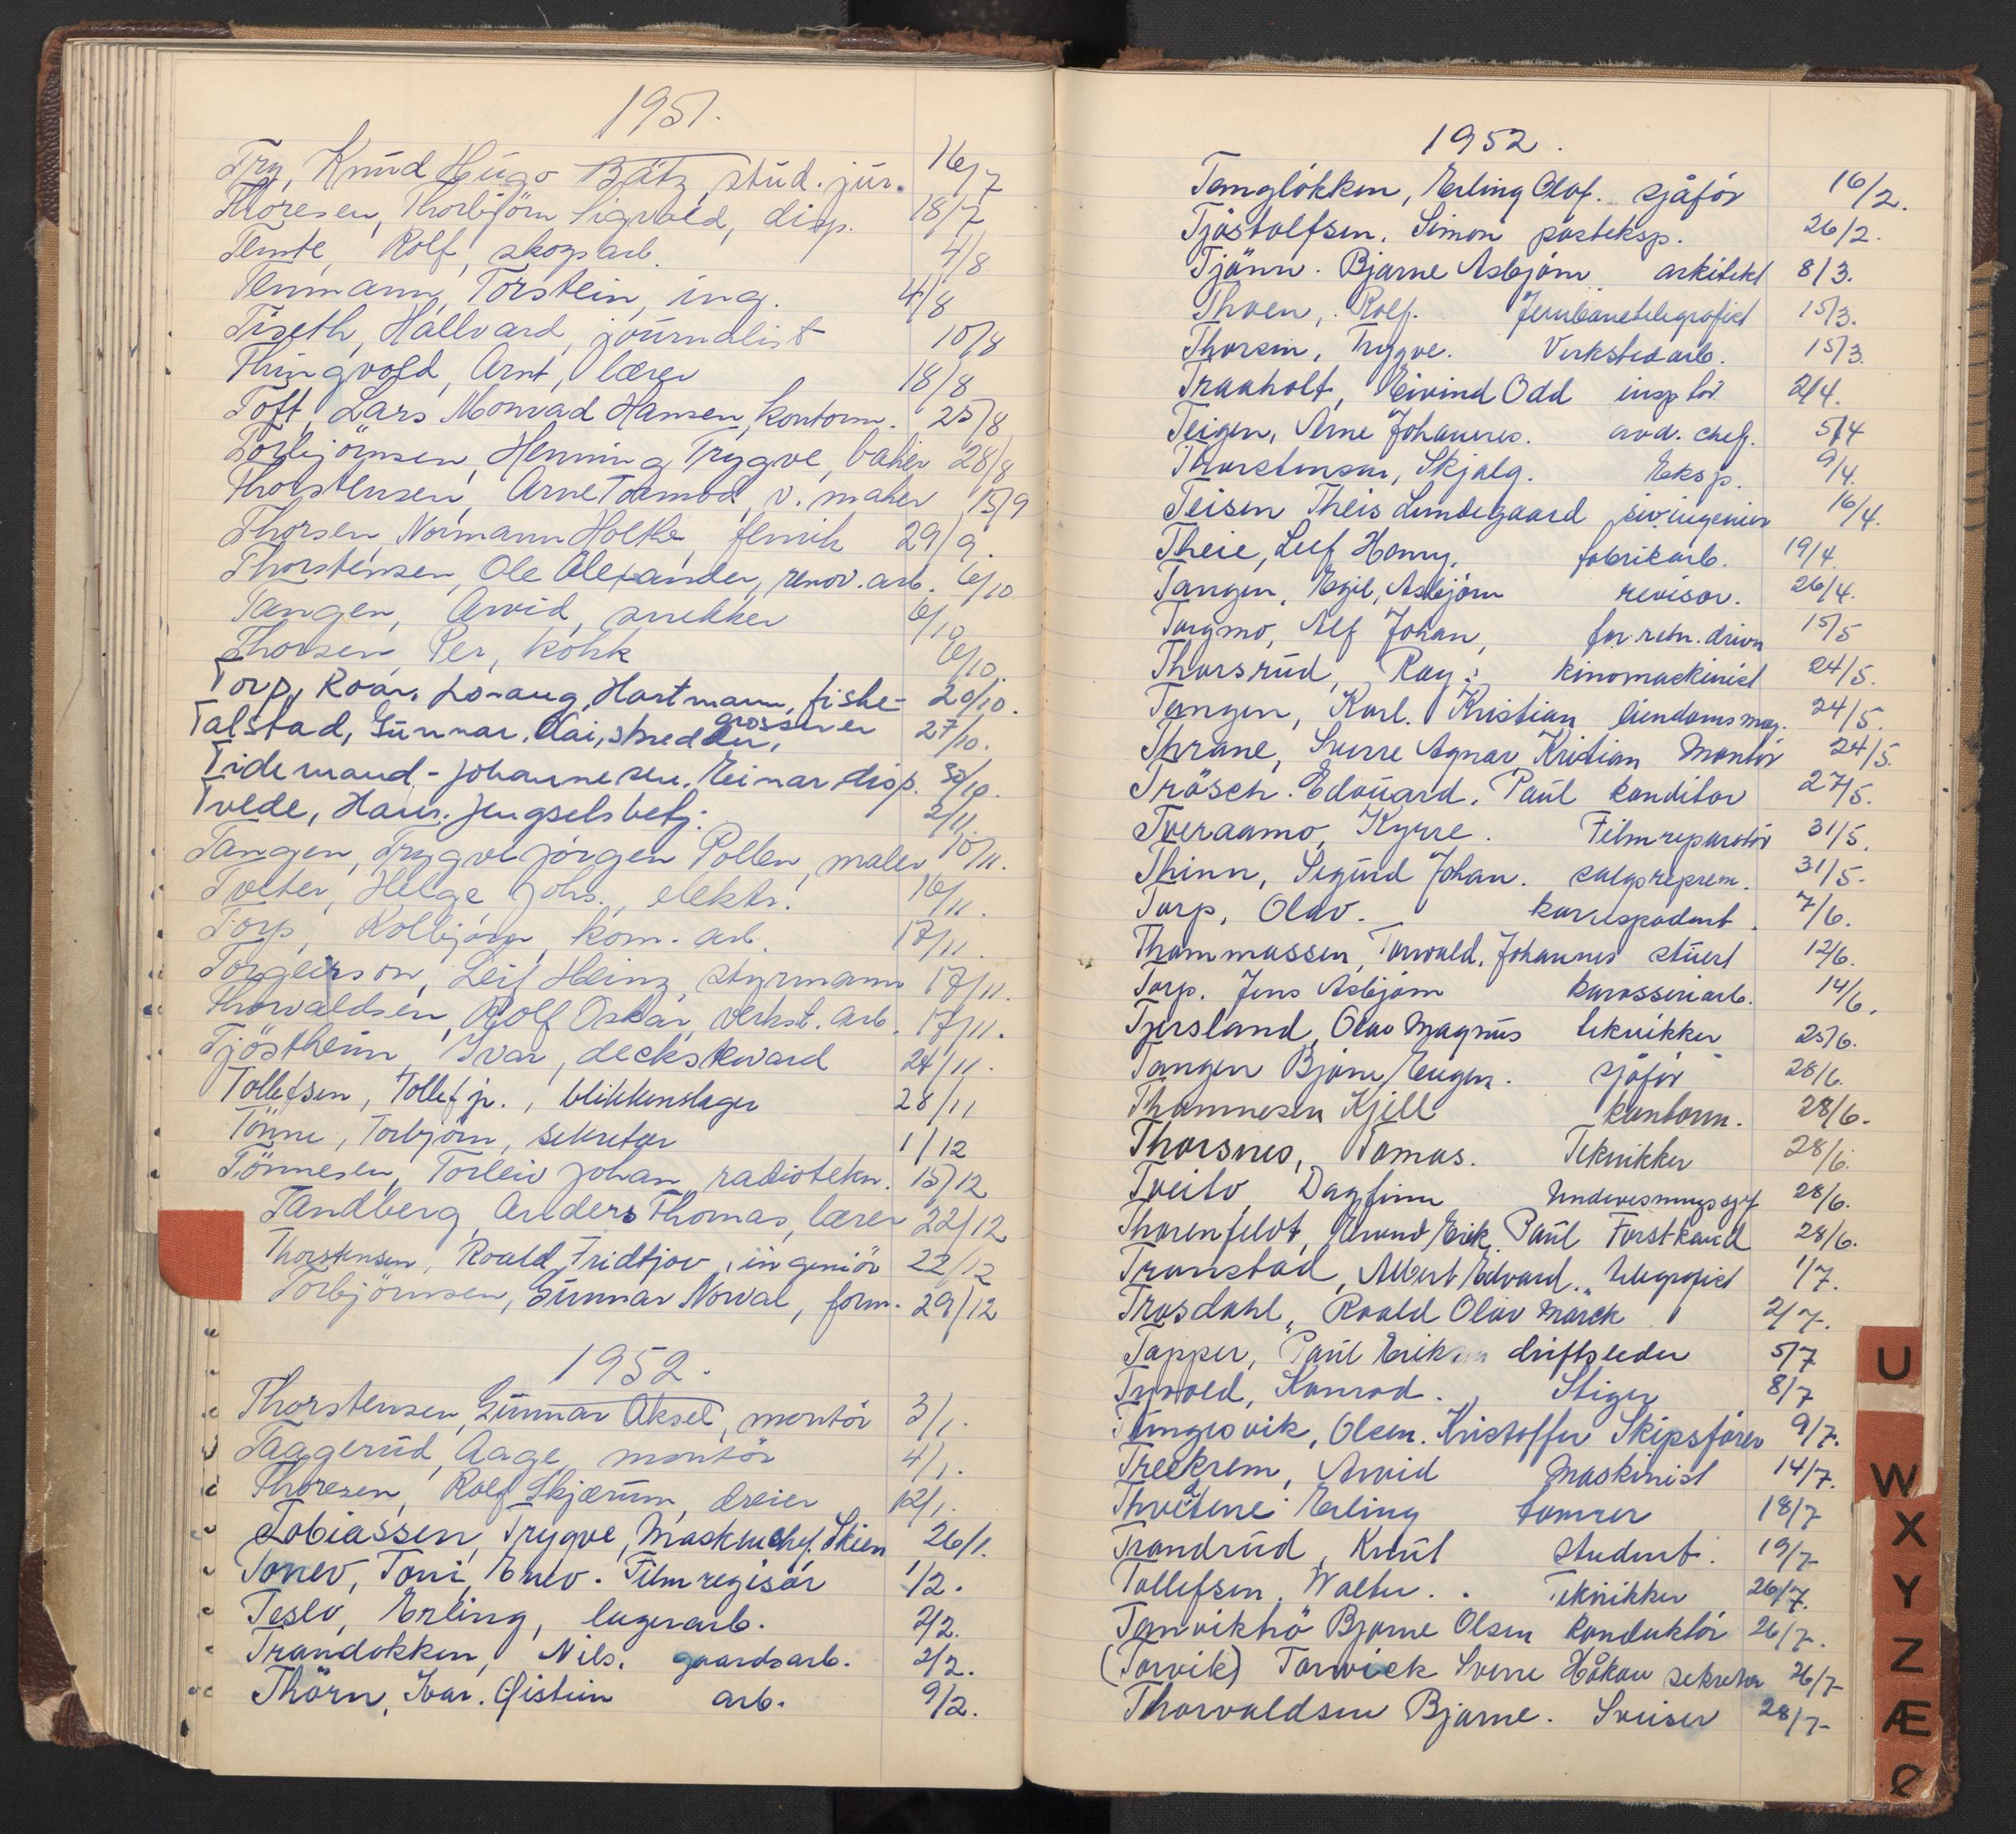 1951.
Try, Knud Hugo Bätz, stud. jur. 16/7
Thoresen, Thorbjörn Sigvald, disp. 18/7
Temte, Rolf, skogsarb. 4/8
Tenmann, Torstein, ing. 4/8
Tiseth, Hallvard, journalist 10/8
Thingvold, Arnt, lærer 18/8
Toft, Lars Monrad Hansen, kontorm. 25/8
Torbjörnsen, Henning Trygve, baker 28/8
Thorstensen, Arne Tormod, v. maker 15/9
Thorsen, Normann Holthe 29/9.
Thorstensen, Ole Alexander, renov. arb. 6/10
Tangen, Arvid, snekker 6/10
Thorsen, Per, kokk 6/10.
Torp, Roar, Hartmann, fiske- 20/10.
grosserer
Talstad, Gunnar, Kai, skredder, 27/10.
Tidemand-Johannesen, Einar disp. 30/10.
Tvede, Hans. fengselsbetj. 2/11
Tangen, Trygve Jörgen Pollen, maler 10/11.
Tveter, Helge Johs., elektr. 16/11.
Torp, Kolbjörn, kom. arb. 17/11.
Torgeirson, Leif Heinz, styrmann 17/11.
Thorvaldsen, Rolf Oskar, verkst. arb. 17/11.
Tjöstheim, Ivar, decksteward 24/11.
Tollefsen, Tollef jr., blikkenslager 28/11
Tönne, Torbjörn, sekretær 1/12
Tönnesen, Torleiv Johan, radiotekn. 15/12
Tandberg, Anders Thomas, lærer 22/12
Thorstensen, Roald Fridtjov, ingeniör 22/12
Torbjörnsen, Gunnar Norval, form. 29/12
1952.
Thorstensen, Gunnar Aksel, montör 3/1.
Taagerud, Aage, montör 4/1.
Thoresen, Rolf Skjærum, dreier 12/1.
Tobiassen, Trygve, Maskinchef. Skien 26/1.
Tonev, Toni, Enev. Filmregisör 1/2.
Teslo, Erling, lagerarb. 2/2.
Trandokken, Nils. gaardsarb. 2/2.
Thörn, Ivar. Øistein arb. 9/2.
1952.
Tanglökken, Erling Olaf. sjåför 16/2.
Tjöstolfsen, Simon posteksp. 26/2.
Tjönn. Bjarne Asbjörn. arkitekt 8/3.
Thoen, Rolf. Jernbanetelegrafist 15/3.
Thorsen, Trygve. Verkstedarb. 15/3.
Traaholt, Eivind Odd insp.tör 2/4.
Teigen, Arne Johannes. avd. chef. 5/4
Thorstensen, Skjalg. Eksp. 9/4.
Teisen Theis Lundegaard siv.ingeniør 16/4.
Theie, Leif Henry, fabrikarb. 19/4.
Tangen, Egil, Asbjörn revisor. 26/4.
Torgmo, Alf Johan, 15/5
Thorsrud, Ray. kinomaskinist 24/5.
Tangen, Karl. Kristian Eiendomsmeg. 24/5.
Thrane, Sverre Agnar Kristian Montör 24/5.
Trösch. Edouard. Paul konditor 27/5.
Tveraamo, Kyrre. Filmreparatör 31/5.
Thinn, Sigurd Johan. salgsreprem. 31/5.
Torp, Olav. korrespodent. 7/6.
Thommassen, Torvald, Johannes stuert 12/6.
Torp. Jens Asbjörn karosseriarb. 14/6.
Tjersland, Olav Magnus tekniker 25/6.
Tangen Björn Eugen. sjåför 28/6.
Thomnesen Kjell kontorm. 28/6.
Thorsnes, Tomas. Teknikker 28/6.
Tveito, Dagfinn Undervisningssjef 28/6.
Thorenfeldt, Erik, Paul Forstkand 28/6.
Tronstad, Albert Edvard. telegrafist 1/7.
Trosdahl, Roald Olav Marck 2/7.
Tapper, Paul Erik driftsleder 5/7
Tyvold, Konrad. Stiger 8/7
Tungesvik, Olsen. Kristoffer Skipsförer 9/7.
Treekrem, Arvid Maskinist 14/7.
Thveitene Erling tömrer 18/7
Trondrud, Knut student. 19/7
Tollefsen, Walter. Teknikker 26/7.
Tanviktrö Bjarne Olsen konduktör 26/7.
(Torvik) Torwick Sverre Håkon sekretær 26/7
Thorvaldsen Bjarne. Sveiser 28/7
U
W
X
Y
Z
Æ
Ø